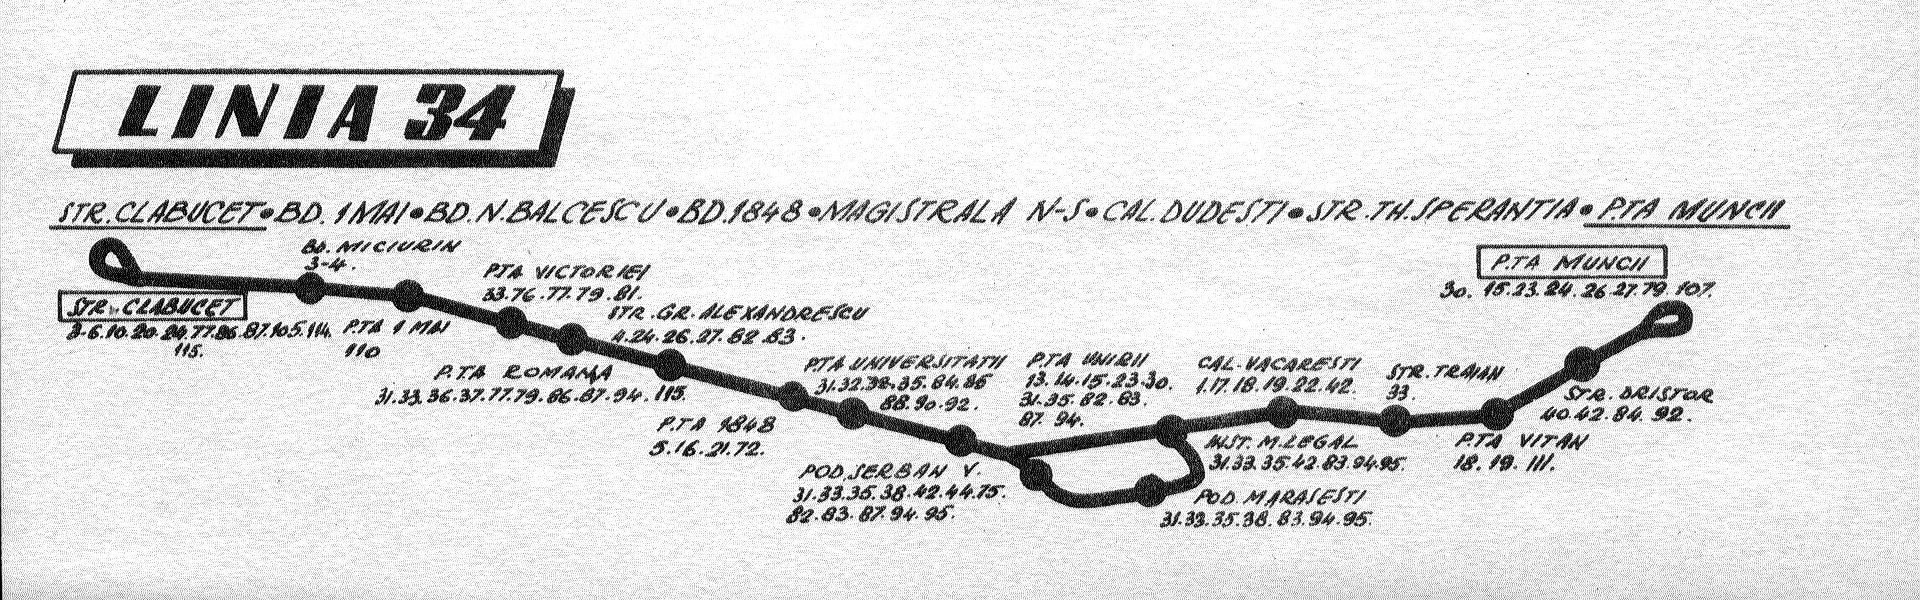 LINIA 34
STR.CLABUCET•BD. 1 MAI•BD.N.BALCESCU•BD.1848•MAGISTRALA N-S•CAL.DUDESTI•STR.TH.SPERANTIA•P.TA MUNCII
STR. CLABUCET
115.
BD. MICIURIN
3-4.
P.TA 1 MAI
110
P.TA VICTORIEI
33.76.77.79.81.
P.TA ROMANA
31.33.36.37.77.79.86.87.94.115.
STR.GR.ALEXANDRESCU
4.24.26.27.82.83.
P.TA 1848
5.16.21.72.
P.TA UNIVERSITATII
88.90.92.
POD.SERBAN V.
31.33.35.38.42.44.75.
82.83.87.94.95.
P.TA UNIRII
13.14.15.23.30.
31.35.82.83.
87. 94.
POD. MARASESTI
31.33.35.38.83.94.95.
INST. M.LEGAL
31.33.35.42.83.94.95.
CAL.VACARESTI
1.17.18.19.22.42.
STR.TRAIAN
33.
P.TA VITAN
18.19.111.
STR. DRISTOR
40.42.84.92.
P.TA MUNCII
30. 15.23.24.26.27.79.107.